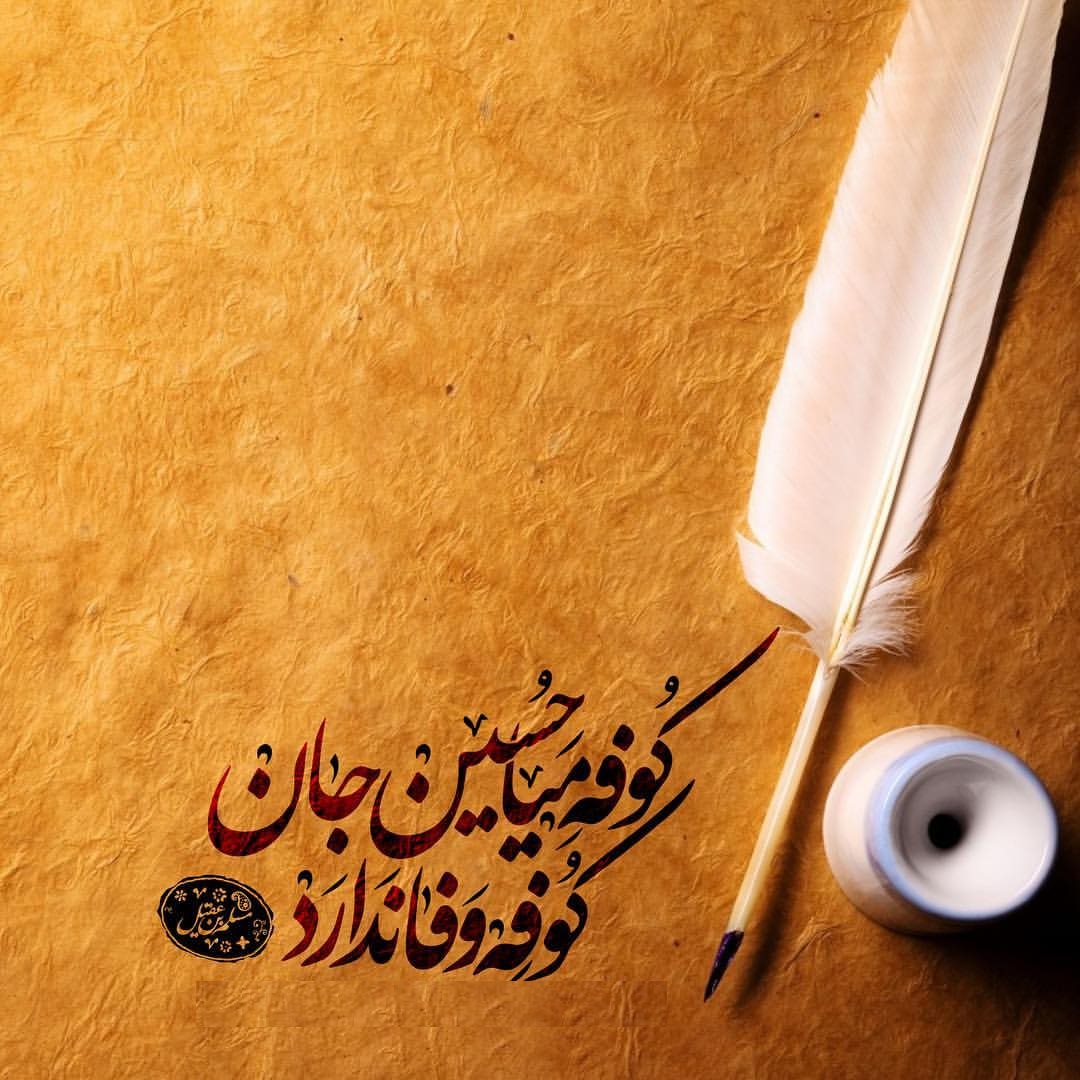 کُوفه میا حُسین جان
کُوفِه وَفا نَدارَد
مسلم بن عقیل